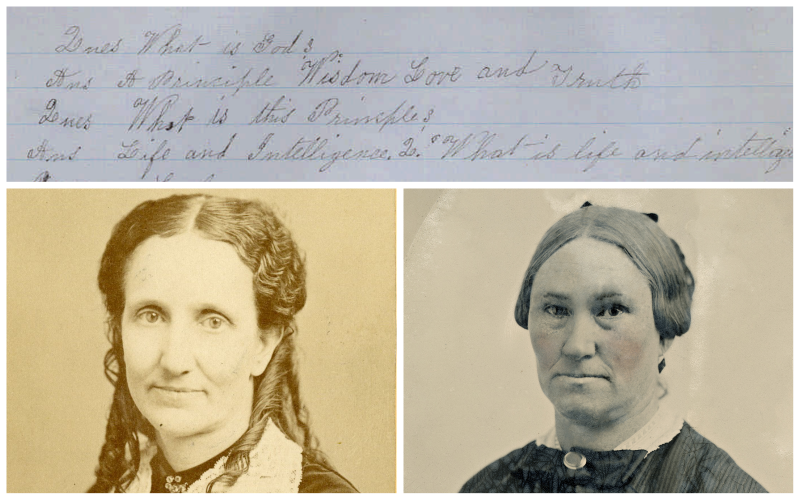 Ques What is God?
Ans A Principle Wisdom Love and Truth
Ques What is this Principle?
Ans Life and Intelligence. Q. "What is life and